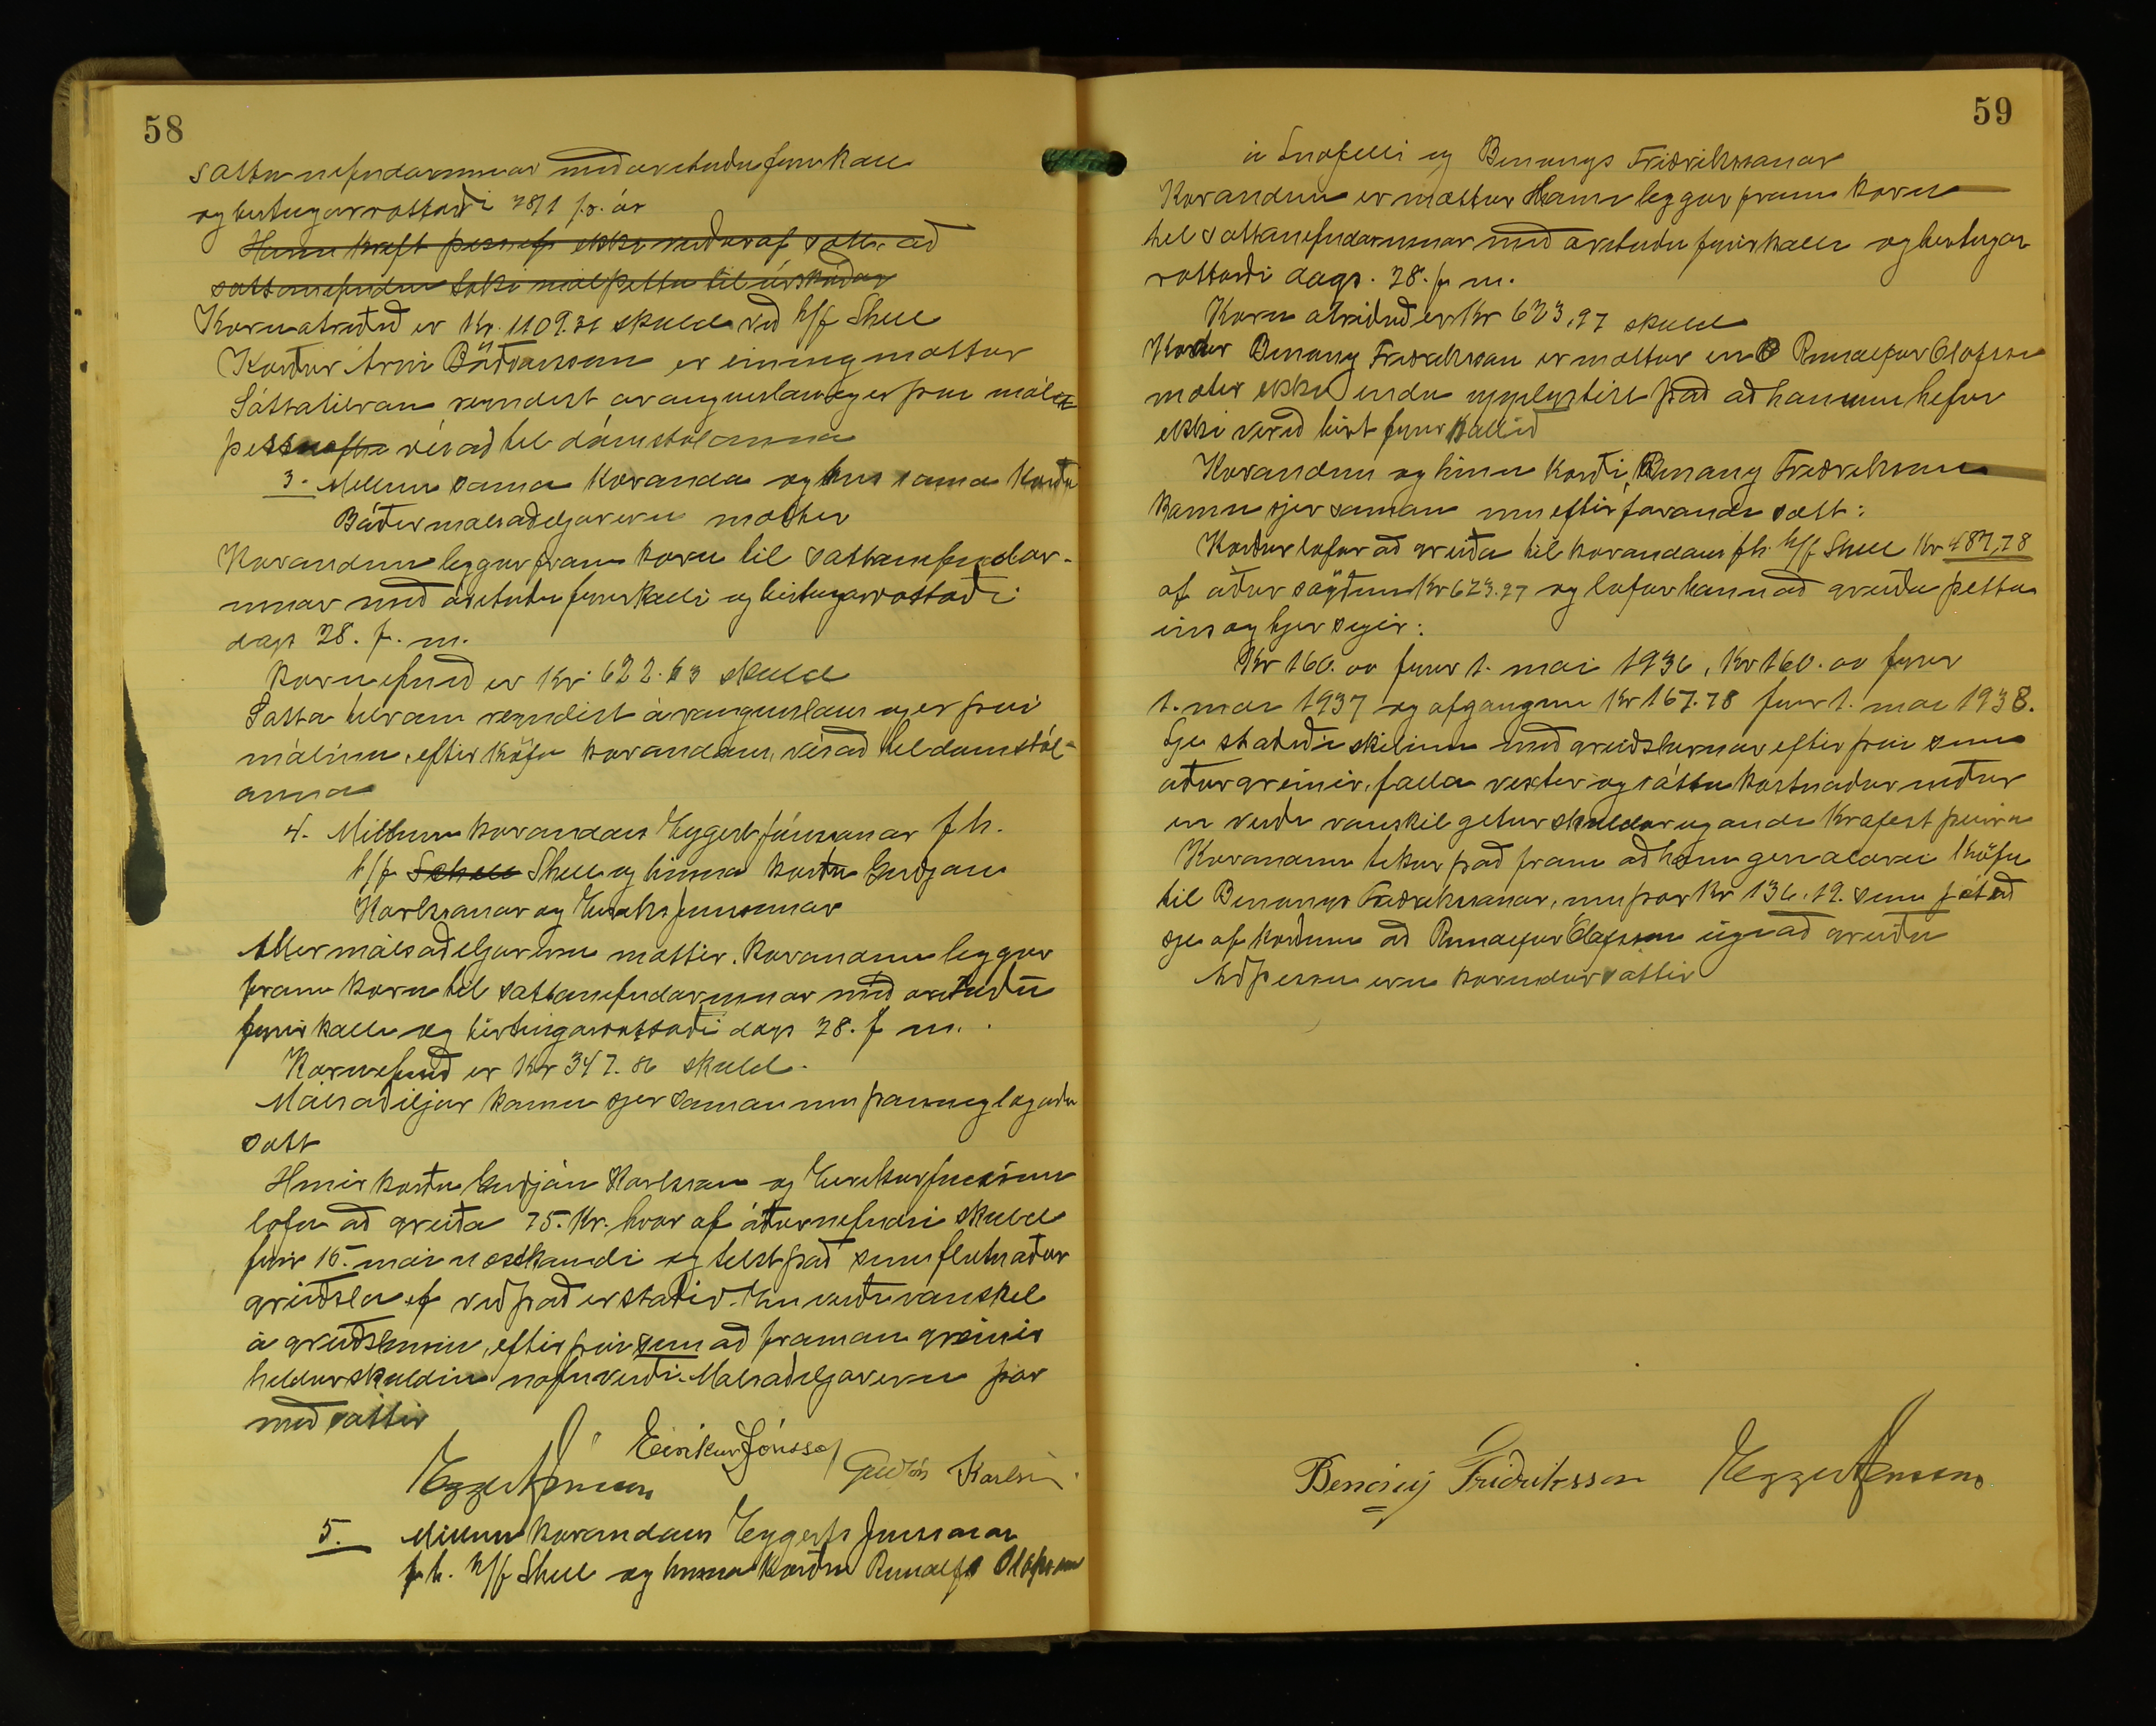 58
sáttanefndarinnar með áteiknuðu fyrirkalli
og birtingarvottorði 28/1 þ. ár
Hann kveðst þess ef ekki verður af sátt að
sáttanefndin taki mál þetta til úrskurðar
Kæruatriðið er Kr. 1109.31 skuld við h/f Shell
Kærður Árni Böðvarsson er einnig mættur
Sáttatilraun reyndist árangurslaus og er því máli
þessu vísað til dómstólanna
3. Millum sama Kæranda og hins sama Kærða
Báðir málsaðiljar eru mættir
Kærandinn leggur fram kæru til sáttanefndar-
innar með áteiknuðu fyrirkalli og birtingarvottorði
dags 28. f. m.
Kæruefnið er Kr. 622.63 skuld
Sáttatilraun reyndist árangurslaus og er því
málinu, eftir kröfu kærandans, vísað til dómstól-
anna
4. Millum kærandans Eggert Jónssonar f.h.
h/f Schell Shell og hinna kærðu Guðjóns
Karlssonar og Eiríks Jónssonar
Allir málsaðiljar eru mættir. Kærandinn leggur
fram kæru til sáttanefndarinnar með áteiknuðu
fyrirkalli og birtingarvottorði dags 28. f m.
Kæruefnið er Kr 347.86 skuld.
Málsaðiljar koma sjer saman um þannig lagaða
sátt
Hinir kærðu Guðjón Karlsson og Eiríkur Jónsson
lofa að greiða 75. Kr. hvor af áðurnefndri skuld
fyrir 15. maí næstkomandi og telst það sem fullnaðar
greiðsla ef við það er staðið. En verði vanskil
á greiðslunni, eftir því sem að framan greinir
heldur skuldin nafnverði. Málsaðiljar eru þar
með sáttir
Eggert Jónsson Eiríkur Jónsson Guðjón Karlsson
5. Millum kærandans Eggerts Jónssonar
f.h. h/f Shell og hinna kærðu Runólfs Ólafssonar
59
á Snæfelli og Benonys Friðrikssonar
Kærandinn er mættur Hann leggur fram kæru
til sáttanefndarinnar með áteiknuðu fyrirkalli og birtingar
vottorði dags. 28. f m.
Kæruatriðið er Kr 623,97 skuld
Kærður Benony Friðriksson er mættur en Runólfur Ólafsson
mætir ekki enda upplýstist það að honum hefur
ekki verið birt fyrirkallið
Kærandinn og hinn kærði, Benony Friðriksson
koma sjer saman um eftirfarandi sátt:
Kærður lofar að greiða til kærandans f.h. h/f Shell Kr 487,78
af áður sögðum Kr 623.97 og lofar hann að greiða þetta
eins og hjer segir:
Kr 160.00 fyrir 1. maí 1936, Kr 160.00 fyrir
1. maí 1937 og afganginn Kr 167.78 fyrir 1. maí 1938.
Sje staðið í skilum með greiðslurnar eftir því sem
áður greinir, falla vextir og sáttakostnaður niður
en verði vanskil getur skuldareigandi krafist þeirra
Kærandinn tekur það fram að hann geri aðra kröfu
til Benonys Friðrikssonar, um þær Kr 136.19. sem játað
sje af kærðum að Runólfur Ólafsson eigi að greiða
Að þessu eru kærendur sáttir
Benóný Friðriksson Eggert Jónsson